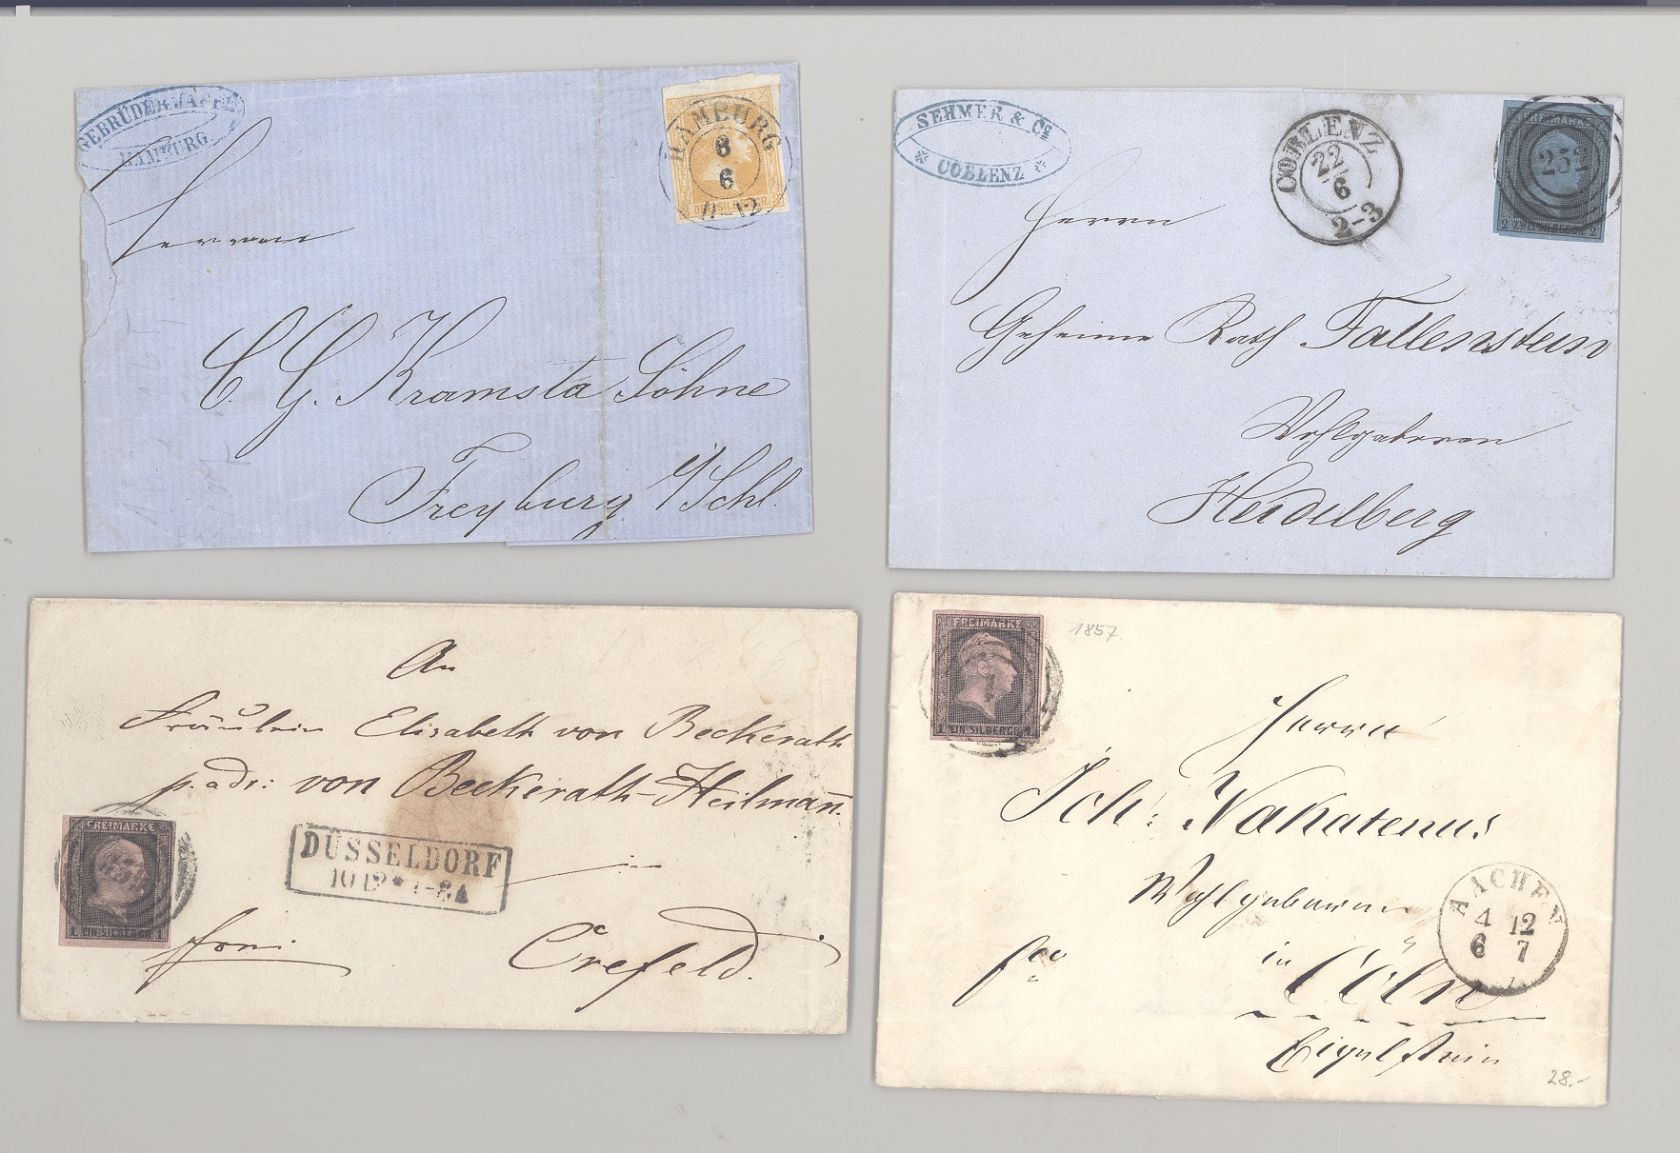 GEBRÜDER JAFFE
HAMBURG
HAMBURG
6
6
11-12
DREI SILBERGR.
Herren
C. G. Kramsta Söhne
Freyburg i/Schl.
SEHMER & Co
COBLENZ
COBLENZ
22
6
2-3
FREIMARKE
252
2 ZWEI SILBERGR. 2
Herrn
Geheime Rath Fallenstein
Wohlgeboren
Heidelberg
An
Fräulein Elisabeth von Beckerath
p. adr: von Beckerath-Heilmann.
FREIMARKE
1 EIN SILBERGR. 1
DÜSSELDORF
10 12
in
Crefeld.
FREIMARKE
1 EIN SILBERGR. 1
1857.
Herrn
Joh: Nakatenus
Wohlgeboren
fco
in Cöln
Eigelstein
AACHEN
4 12
6 7
28.-